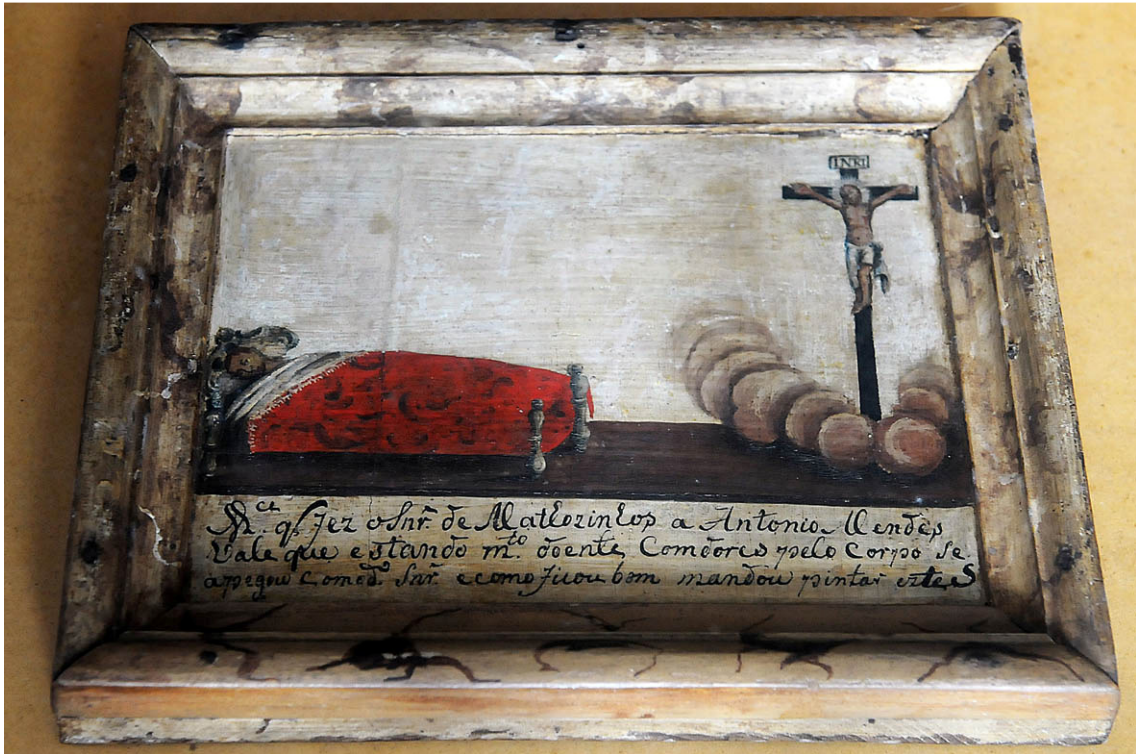 INRI
M.ce q̃ fez o Snr̃. de Mattozinhos a Antonio Mendes
Vale que estando m.to doente, Com dores pelo Corpo Se
apegou com o d.o Snr̃. e como ficou bom mandou pintar este S